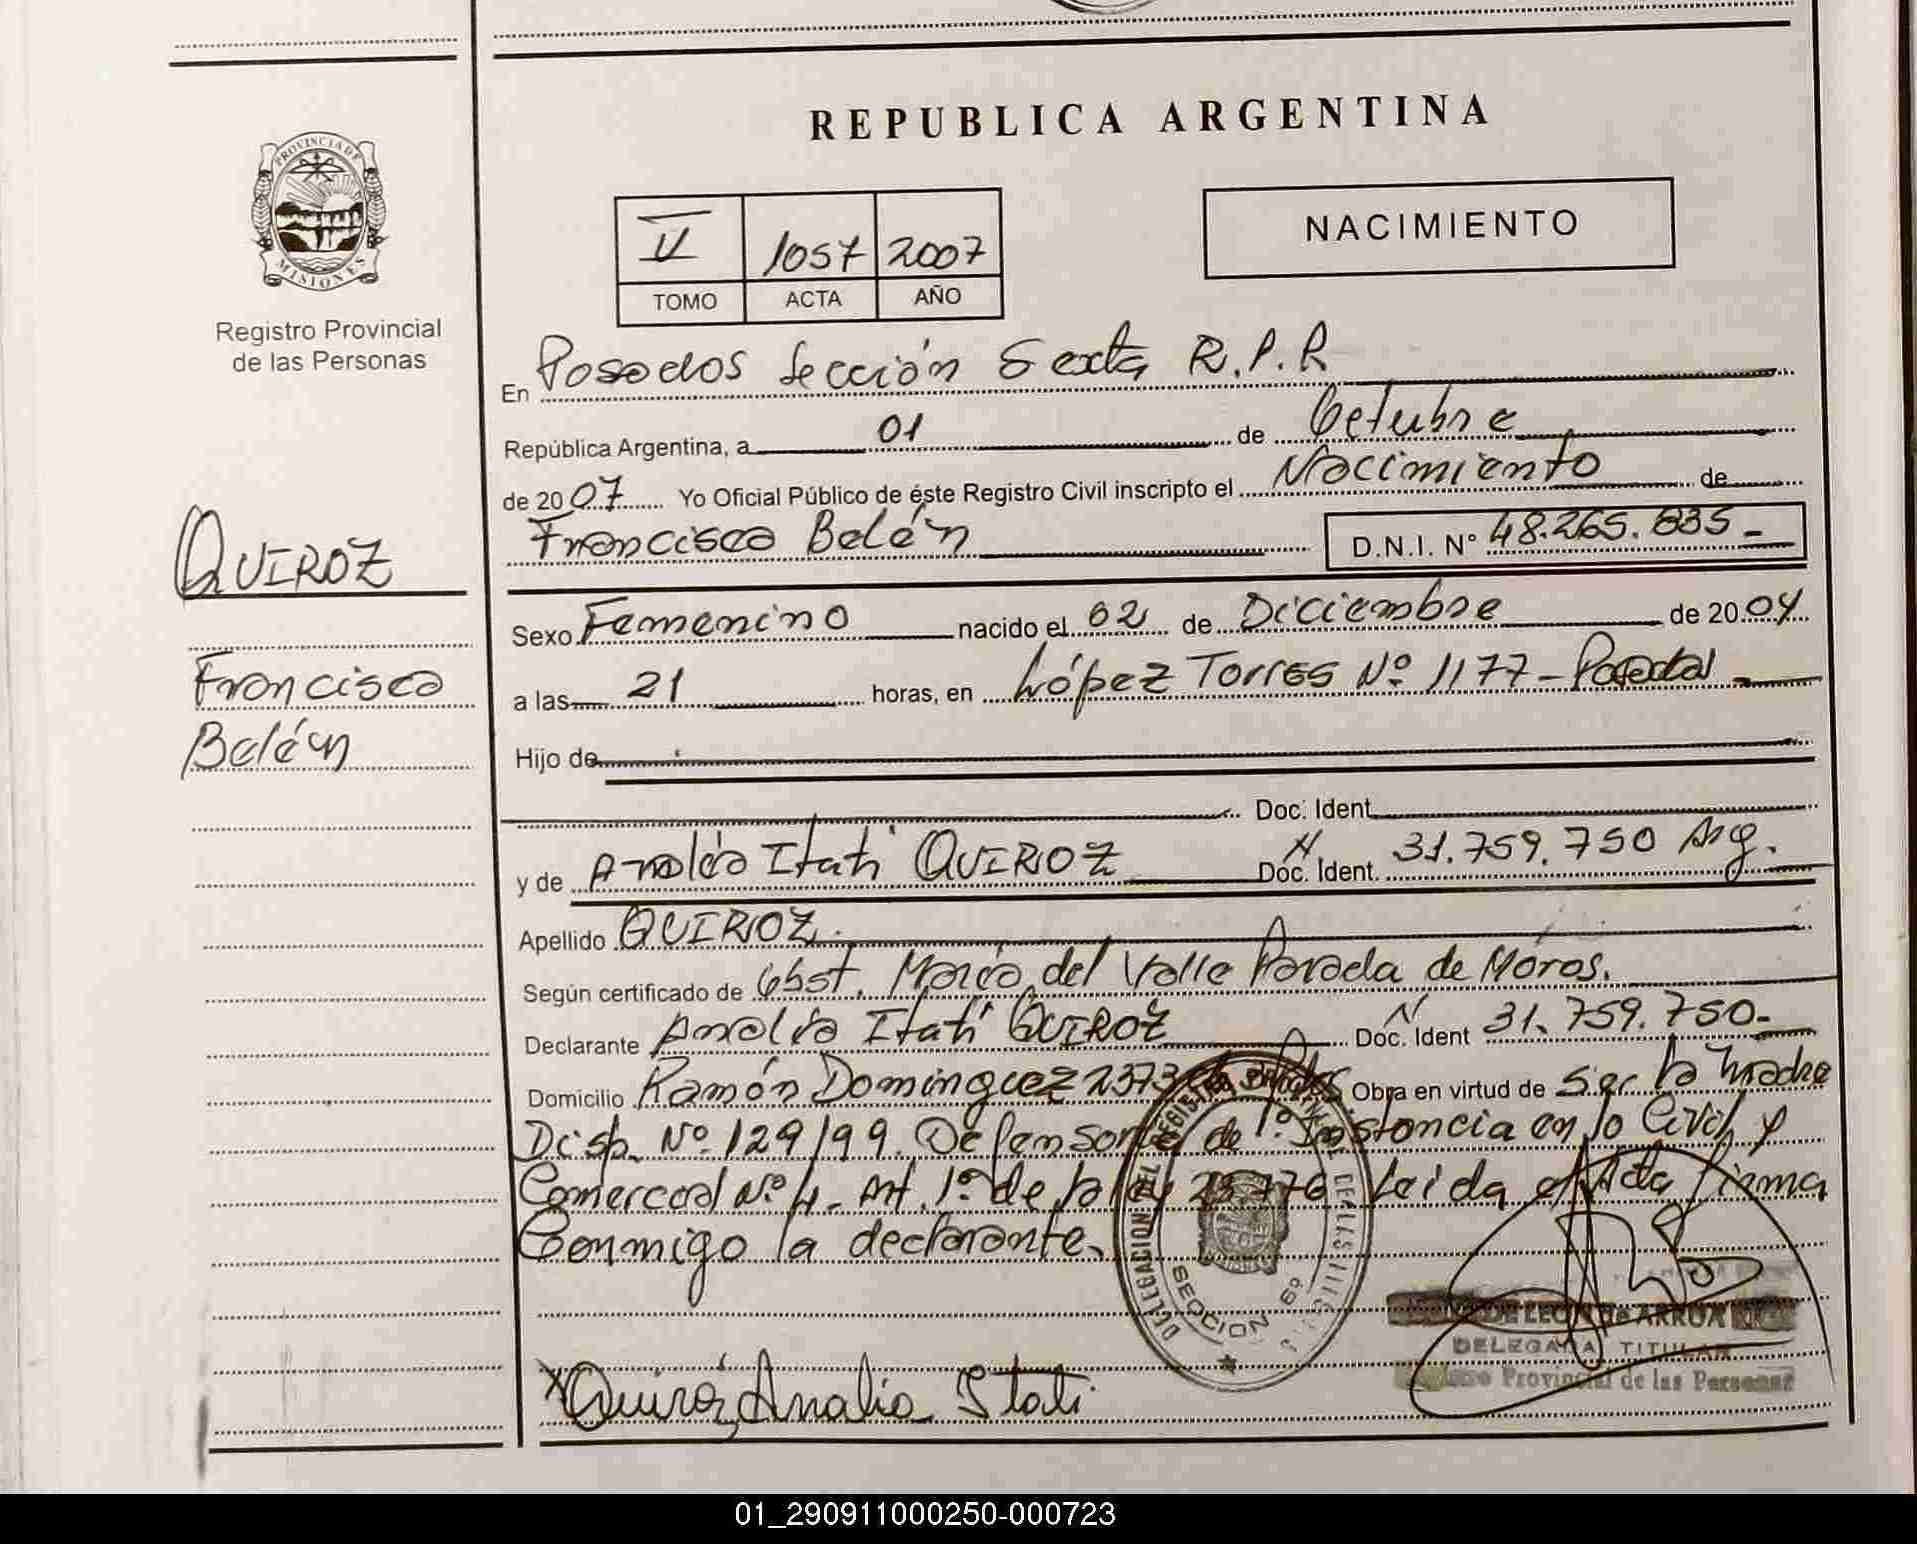 REPUBLICA ARGENTINA
PROVINCIA DE
MISIONES
Registro Provincial
de las Personas
V 1057 2007
TOMO ACTA AÑO
NACIMIENTO
En Posadas Sección Sexta R.P.R
República Argentina, a 01 de Octubre
de 2007 Yo Oficial Público de éste Registro Civil inscripto el Nacimiento de
Francisca Belén D.N.I. N° 48.265.835-
QUIROZ
Francisca
Belén
Sexo Femenino nacido el 02 de Diciembre de 2004
a las 21 horas, en López Torres Nº 1177-
Hijo de
Doc. Ident.
y de Analía Itatí QUIROZ Doc. Ident. 31.759.750 Arg.
Apellido QUIROZ.
Según certificado de Obst. María del Valle Parada de Moros.
Declarante Analía Itatí QUIROZ Doc. Ident 31.759.750-
Domicilio Ramón Dominguez 2373 Obra en virtud de Ser la Madre
Disp. Nº 129/99. Defensoría de 1º Instancia en lo Civil y
Comercial Nº 4. Art. 1º de la ley Leida el Acta firma
Conmigo la declarante.
DELEGACION DEL REGISTRO
SECCION 6º
DE LEON de ARRUA
DELEGADA TITULAR
Provincial de las Personas
X Quiroz Analia Itati
01_290911000250-000723